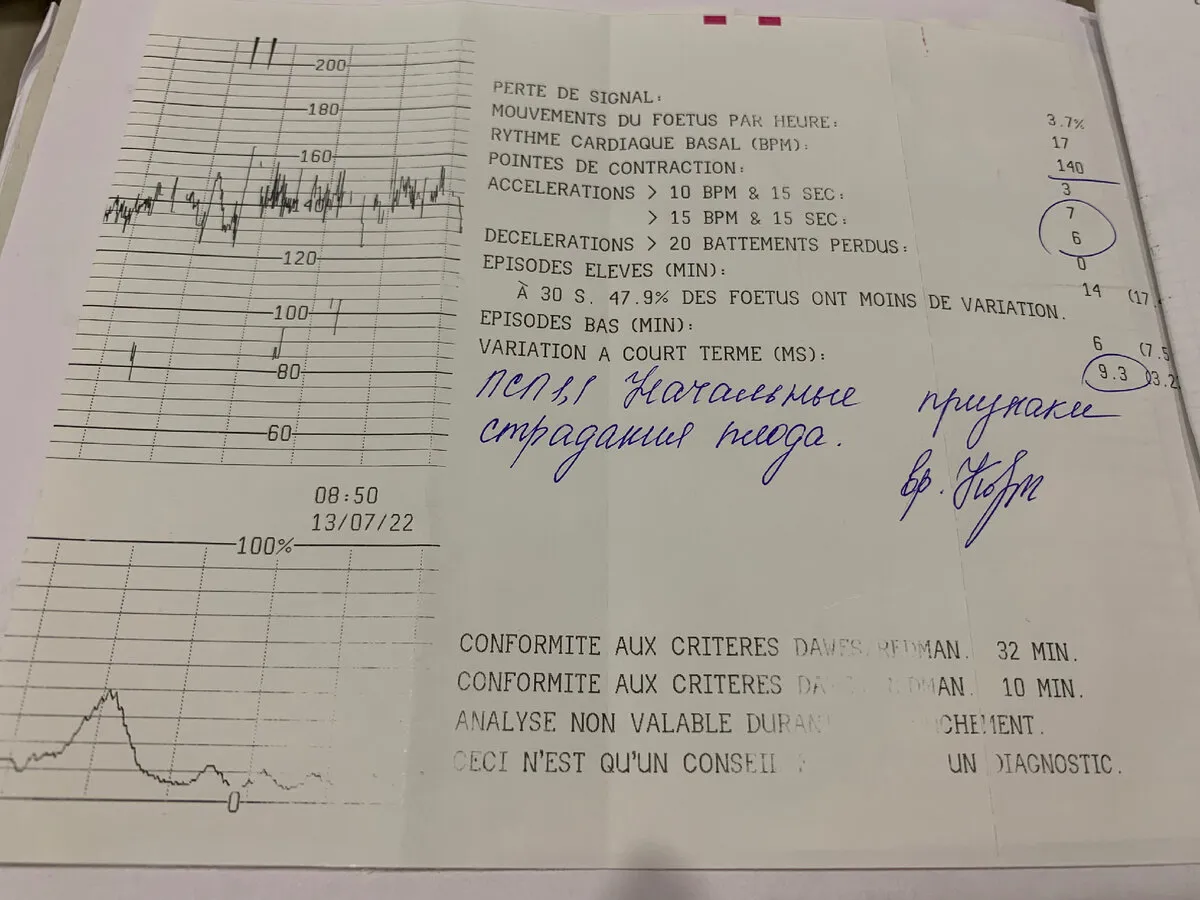 200
180
160
140
120
100
80
60
08:50
13/07/22
100%
0
PERTE DE SIGNAL: 3.7%
MOUVEMENTS DU FOETUS PAR HEURE: 17
RYTHME CARDIAQUE BASAL (BPM): 140
POINTES DE CONTRACTION: 3
ACCELERATIONS > 10 BPM & 15 SEC: 7
> 15 BPM & 15 SEC: 6
DECELERATIONS > 20 BATTEMENTS PERDUS: 0
EPISODES ELEVES (MIN): 14 (17
À 30 S. 47.9% DES FOETUS ONT MOINS DE VARIATION.
EPISODES BAS (MIN): 6 (7.5
VARIATION A COURT TERME (MS): 9.3 03.2
ПСП 1,1 Начальные признаки
страдания плода.
вр.
CONFORMITE AUX CRITERES DAWES/REDMAN. 32 MIN.
CONFORMITE AUX CRITERES 10 MIN.
ANALYSE NON VALABLE
CECI N'EST QU'UN CONSEIL UN DIAGNOSTIC.